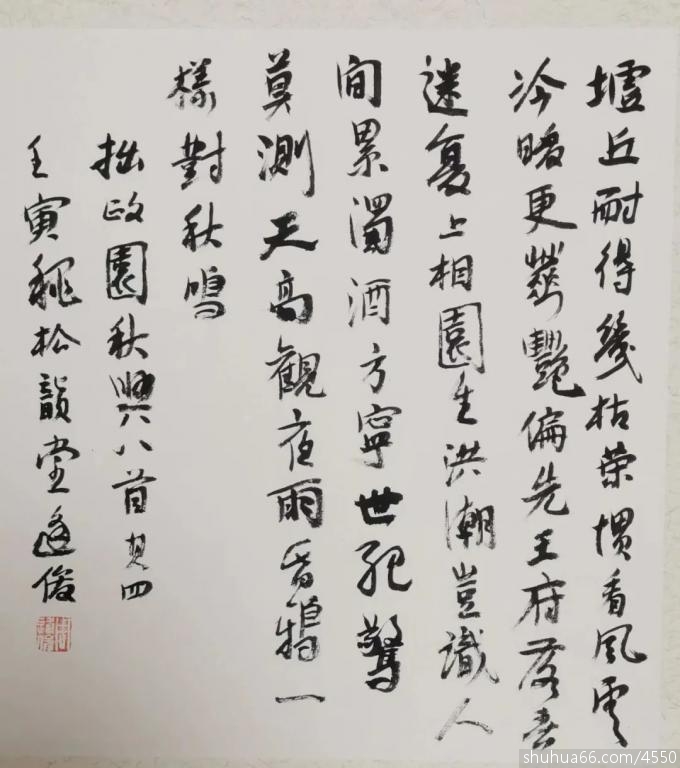 墟丘耐得幾枯荣惯看風雲
冷暖更艷偏先王府落
迷复上相園生洪潮豈識人
间累濁酒方寧世紀驚
莫測天高觀夜雨昏鴉一
樣對秋鳴
拙政園秋興八首其四
壬寅松韻堂俊
shuhua66.com/4550